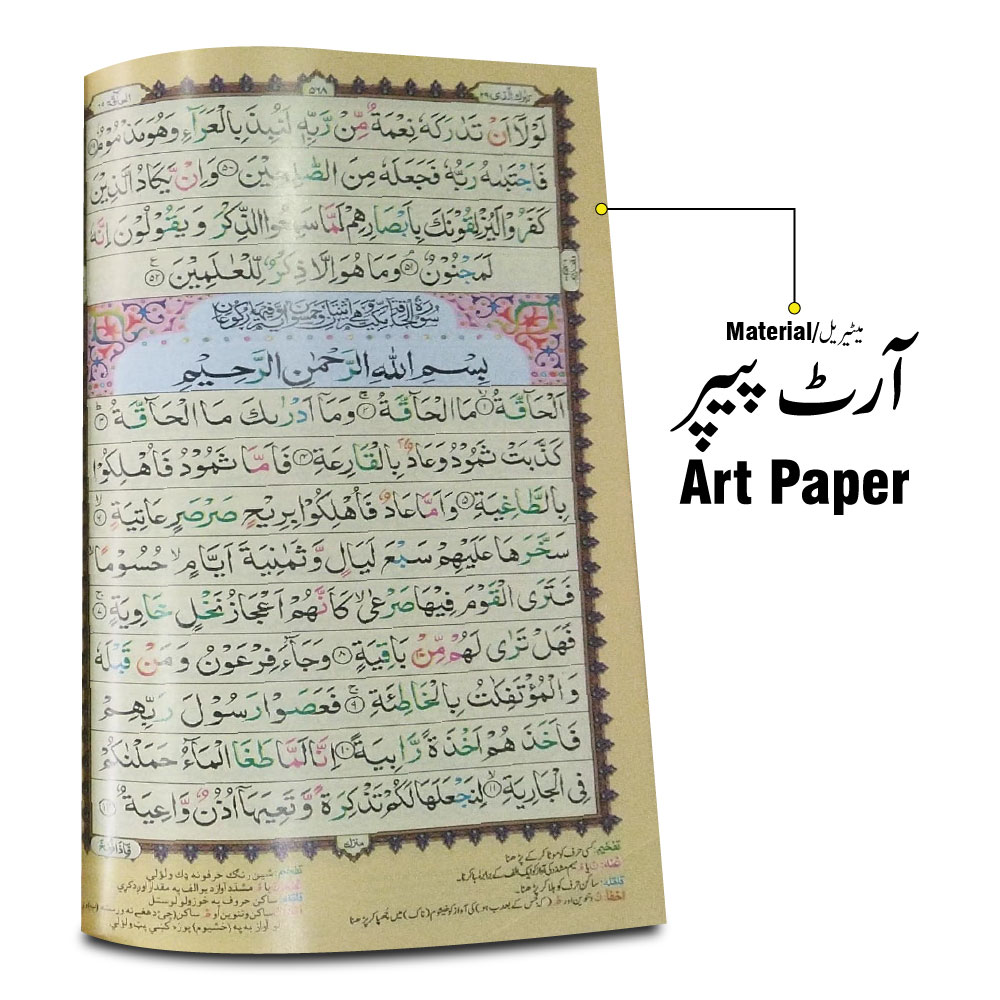 تبٰرك الذی ۲۹
۵۶۸
الحاقة ۶۹
لَوْلَاۤ اَنْ تَدٰرَكَهٗ نِعْمَةٌ مِّنْ رَّبِّهٖ لَنُبِذَ بِالْعَرَآءِ وَهُوَ مَذْمُوْمٌ ﴿۴۹﴾
فَاجْتَبٰىهُ رَبُّهٗ فَجَعَلَهٗ مِنَ الصّٰلِحِيْنَ ﴿۵۰﴾ وَاِنْ يَّكَادُ الَّذِيْنَ
كَفَرُوْا لَيُزْلِقُوْنَكَ بِاَبْصَارِهِمْ لَمَّا سَمِعُوا الذِّكْرَ وَيَقُوْلُوْنَ اِنَّهٗ
لَمَجْنُوْنٌ ﴿۵۱﴾ وَمَا هُوَ اِلَّا ذِكْرٌ لِّلْعٰلَمِيْنَ ﴿۵۲﴾
بِسْمِ اللّٰهِ الرَّحْمٰنِ الرَّحِيْمِ
اَلْحَآقَّةُ ﴿۱﴾ مَا الْحَآقَّةُ ﴿۲﴾ وَمَاۤ اَدْرٰىكَ مَا الْحَآقَّةُ ﴿۳﴾
كَذَّبَتْ ثَمُوْدُ وَعَادٌۢ بِالْقَارِعَةِ ﴿۴﴾ فَاَمَّا ثَمُوْدُ فَاُهْلِكُوْا
بِالطَّاغِيَةِ ﴿۵﴾ وَاَمَّا عَادٌ فَاُهْلِكُوْا بِرِيْحٍ صَرْصَرٍ عَاتِيَةٍ ﴿۶﴾
سَخَّرَهَا عَلَيْهِمْ سَبْعَ لَيَالٍ وَّثَمٰنِيَةَ اَيَّامٍ حُسُوْمًا
فَتَرَى الْقَوْمَ فِيْهَا صَرْعٰى كَاَنَّهُمْ اَعْجَازُ نَخْلٍ خَاوِيَةٍ ﴿۷﴾
فَهَلْ تَرٰى لَهُمْ مِّنْۢ بَاقِيَةٍ ﴿۸﴾ وَجَآءَ فِرْعَوْنُ وَمَنْ قَبْلَهٗ
وَالْمُؤْتَفِكٰتُ بِالْخَاطِئَةِ ﴿۹﴾ فَعَصَوْا رَسُوْلَ رَبِّهِمْ
فَاَخَذَهُمْ اَخْذَةً رَّابِيَةً ﴿۱۰﴾ اِنَّا لَمَّا طَغَا الْمَآءُ حَمَلْنٰكُمْ
فِى الْجَارِيَةِ ﴿۱۱﴾ لِنَجْعَلَهَا لَكُمْ تَذْكِرَةً وَّتَعِيَهَاۤ اُذُنٌ وَّاعِيَةٌ ﴿۱۲﴾
منزل
تفخیم: کسی حرف کو موٹا کر کے پڑھنا
قلقلہ: ساکن حرف کو ہلا کر پڑھنا۔
Material/میٹیریل
آرٹ پیپر
Art Paper